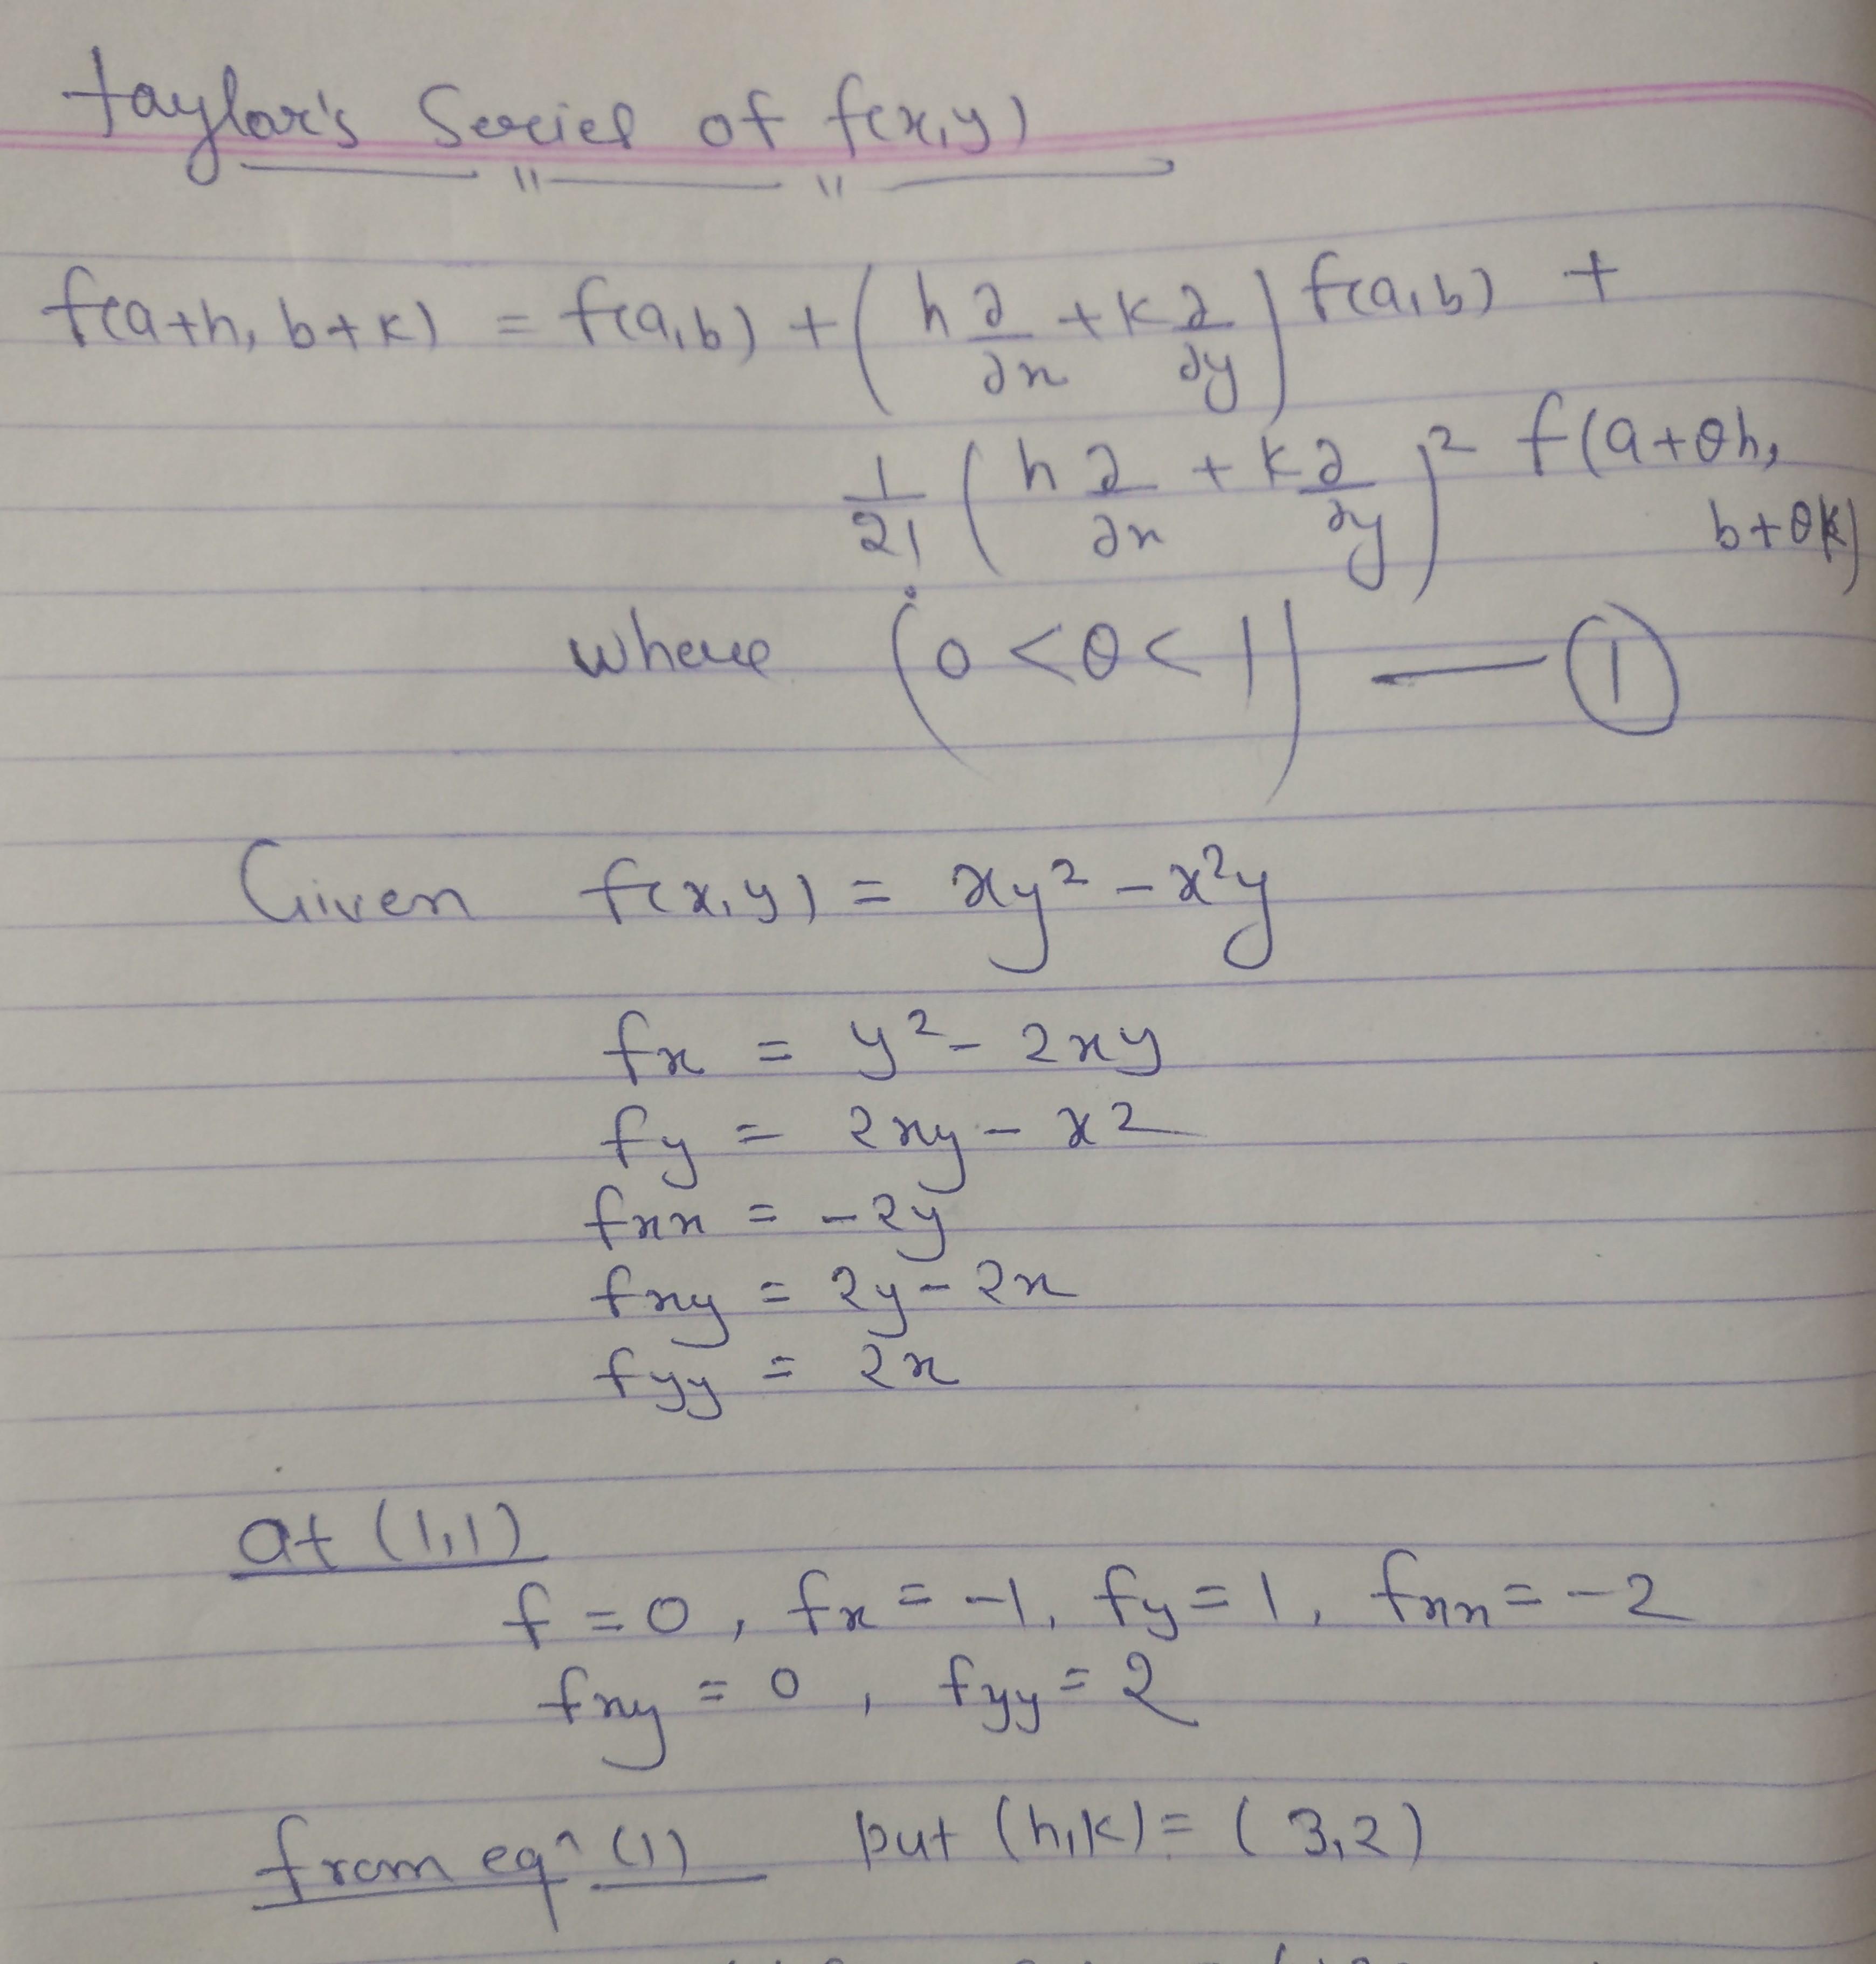 Taylor's Series of f(x,y)
f(a+h, b+k) = f(a,b) + (h ∂/∂x + k ∂/∂y) f(a,b) +
1/2! (h ∂/∂x + k ∂/∂y)² f(a+θh,
b+θk)
where (0<θ<1) — ①
Given f(x,y) = xy² - x²y
fx = y² - 2xy
fy = 2xy - x²
fxx = -2y
fxy = 2y - 2x
fyy = 2x
at (1,1)
f = 0, fx = -1, fy = 1, fxx = -2
fxy = 0, fyy = 2
from eqⁿ (1) put (h,k) = (3,2)